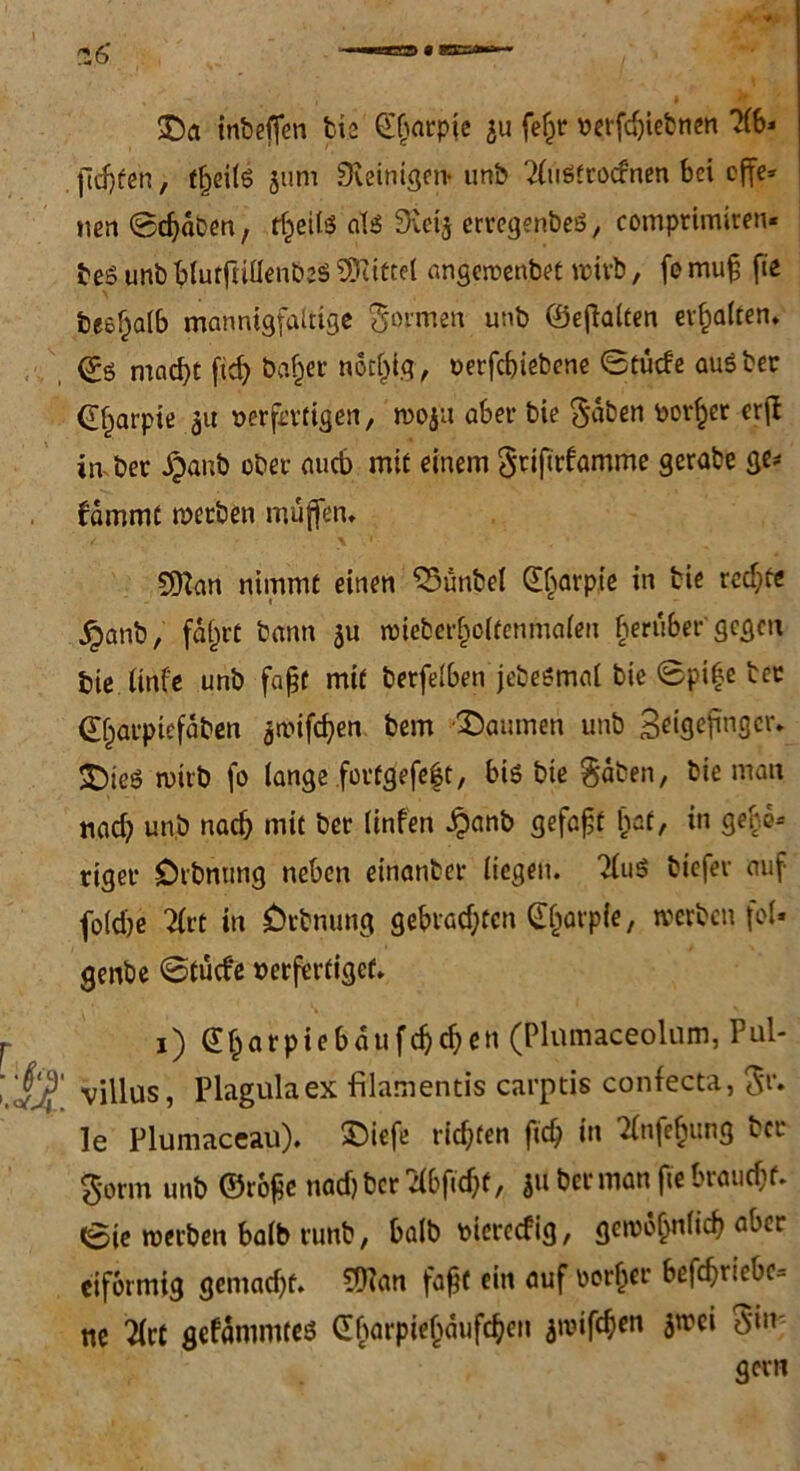 26
Da indessen die Charpie zu sehr verschiednen Ab-
sichten, theils zum Reinigen und Austrocknen bei offe-
nen Schäden, theils als Reiz erregendes, comprimiren-
des und blutstillendes Mittel angewendet wird, so muß sie
deshalb mannigfaltige Formen und Gestalten erhalten.
Es macht sich daher nöthig, verschiedene Stücke aus der
Charpie zu verfertigen, wozu aber die Fäden vorher erst
in der Hand oder auch mit einem Frisirkamme gerade ge-
kämmt werden müssen.
Man nimmt einen Bündel Charpie in die rechte
Hand, fährt dann zu wiederholtenmalen herüber gegen
die linke und faßt mit derselben jedesmal die Spitze der
Charpiefäden zwischen dem Daumen und Zeigefinger.
Dies wird so lange fortgesetzt, bis die Fäden, die man
nach und nach mit der linken Hand gefaßt hat, in gehö-
riger Ordnung neben einander liegen. Aus dieser auf
solche Art in Ordnung gebrachten Charpie, werden fol-
gende Stücke verfertiget.
1) Charpiebäuschchen (Plumaceolum, Pul-
villus, Plagula ex filamentis carptis confecta, Fr.
le Plumaceau). Diese richten sich in Ansehung der
Form und Größe nach der Absicht, zu der man sie braucht.
Sie werden bald rund, bald viereckig, gewöhnlich aber
eiförmig gemacht. Man faßt ein auf vorher beschriebe-
ne Art gekämmtes Charpiehäufchen zwischen zwei Fin-
gern